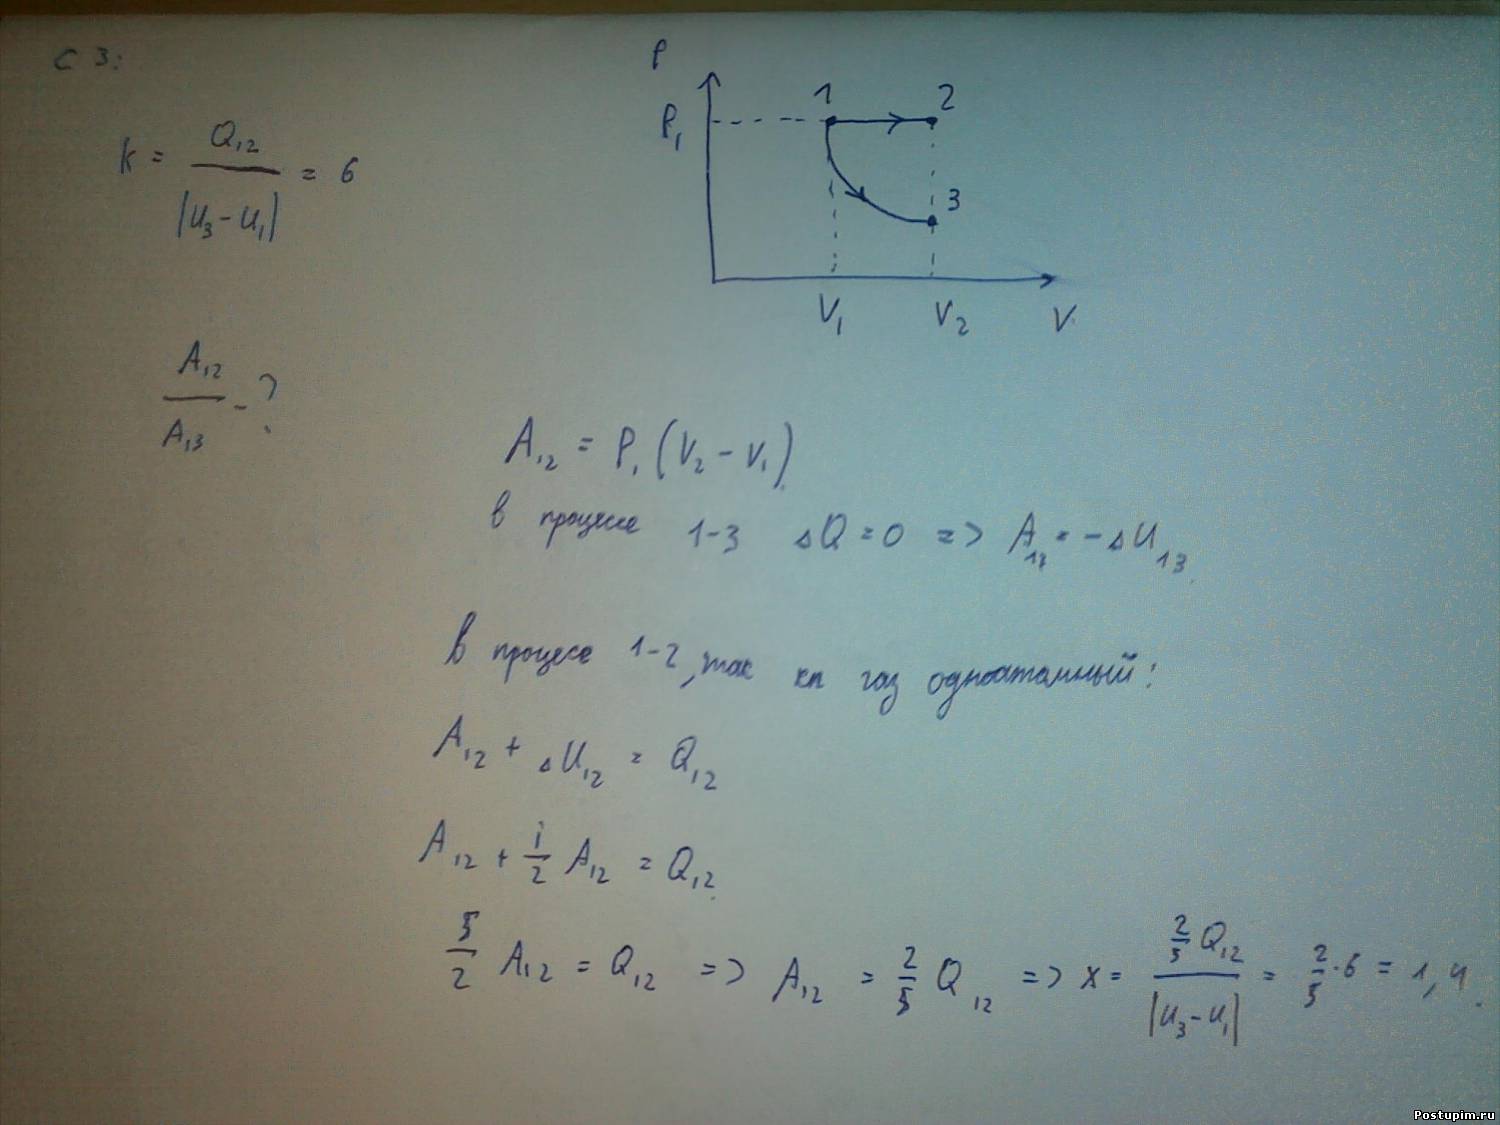 С 3:
k = Q₁₂ / |U₃ - U₁| = 6
P
P₁
1
2
3
V₁
V₂
V
A₁₂ / A₁₃ - ?
A₁₂ = P₁ (V₂ - V₁)
в процессе 1-3 ΔQ = 0 => A₁₃ = -ΔU₁₃
В процесе 1-2, так кк газ одноатомный:
A₁₂ + ΔU₁₂ = Q₁₂
A₁₂ + i/2 A₁₂ = Q₁₂
5/2 A₁₂ = Q₁₂ => A₁₂ = 2/5 Q₁₂ => x = 2/5 Q₁₂ / |U₃ - U₁| = 2/5 · 6 = 1,4.
Postupim.ru